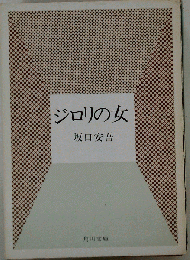 ジロリの女
坂口安吾
角川文庫